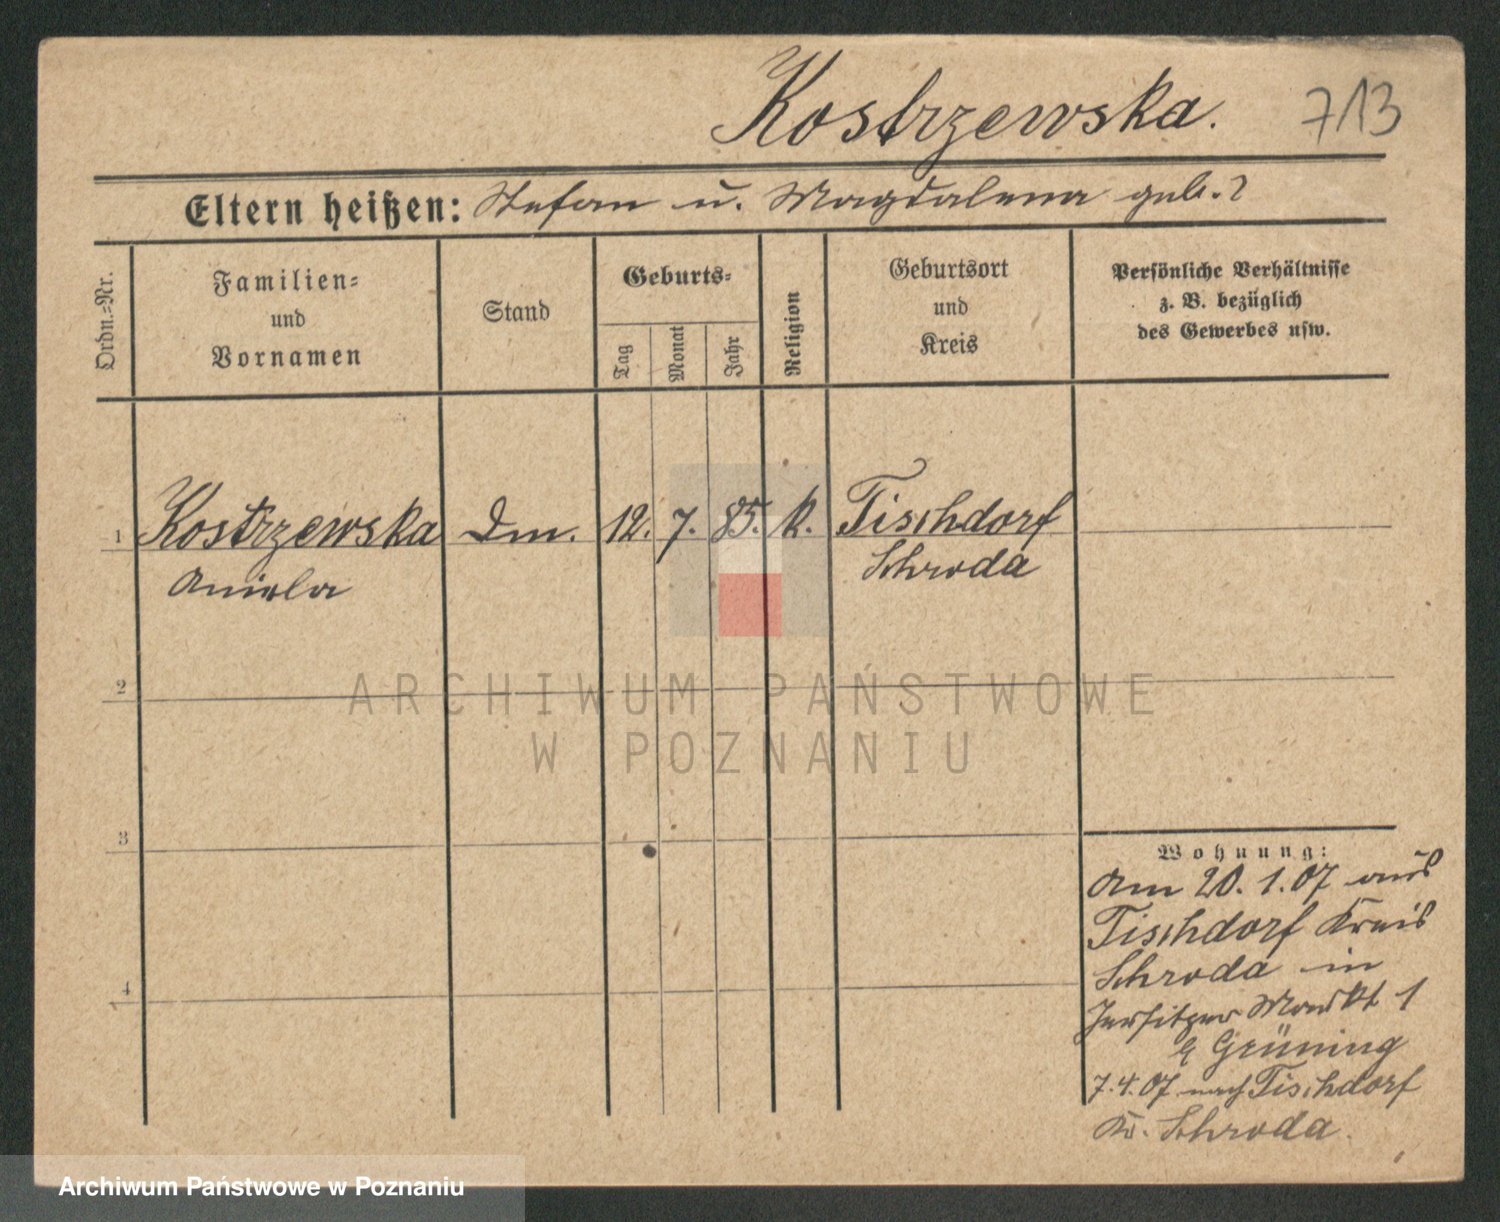 Kostrzewska. 713
Eltern heißen: Stefan u. Magdalena geb. ?
Ordn.-Nr.
Familien-
und
Vornamen
Stand
Geburts-
Tag
Monat
Jahr
Religion
Geburtsort
und
Kreis
Persönliche Verhältnisse
z. B. bezüglich
des Gewerbes usw.
1 Kostrzewska Dm. 12. 7. 85. k. Tischdorf
Aniela Schroda
2
ARCHIWUM PAŃSTWOWE
W POZNANIU
3
4
Wohnung:
Am 20. 1. 07 aus
Tischdorf Kreis
Schroda in
Jersitzer Markt 1
Grüning
7. 4. 07 nach Tischdorf
Kr. Schroda.
Archiwum Państwowe w Poznaniu